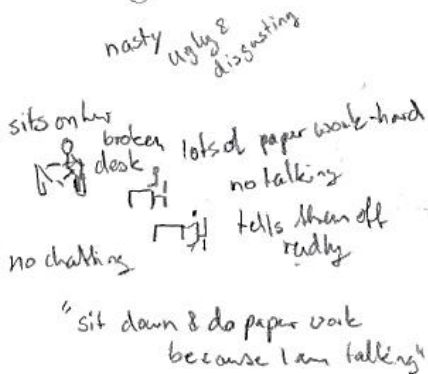 nasty ugly &
disgusting
sits on her
broken
desk
lots of paper work - hard
no talking
tells them off
rudly
no chatting
"sit down & do paper work
because I am talking"